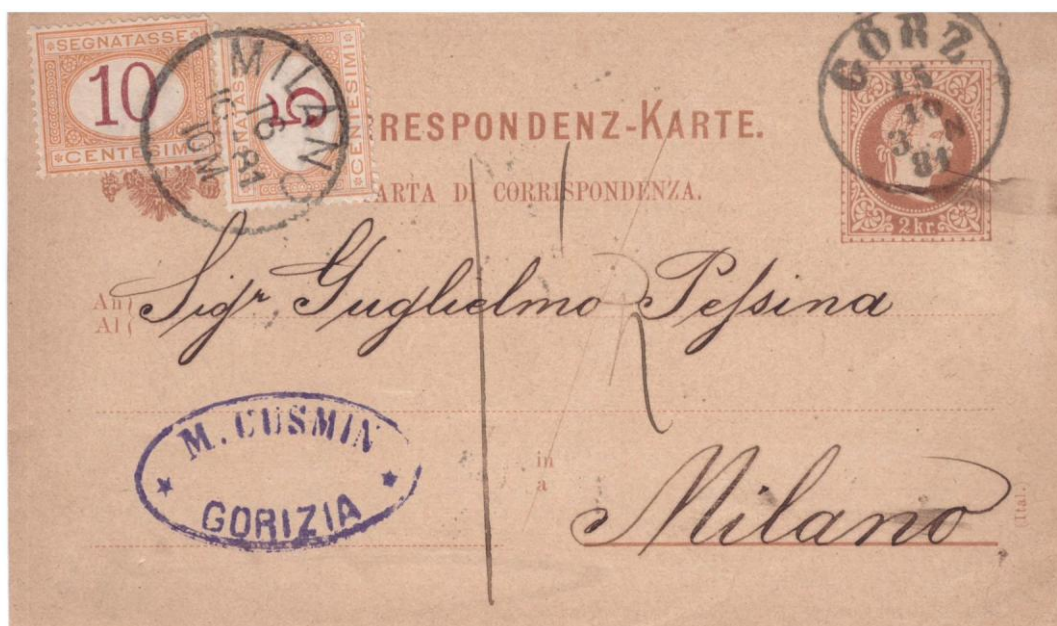 SEGNATASSE
10
CENTESIMI
SEGNATASSE
5
CENTESIMI
MILANO
16
10-81
10M
GÖRZ
15
10
81
3 N
2 kr.
RRESPONDENZ-KARTE.
ARTA DI CORRISPONDENZA.
An
Al
Sigr Guglielmo Pessina
M. CUSMIN
GORIZIA
in
a
Milano
(Ital.)